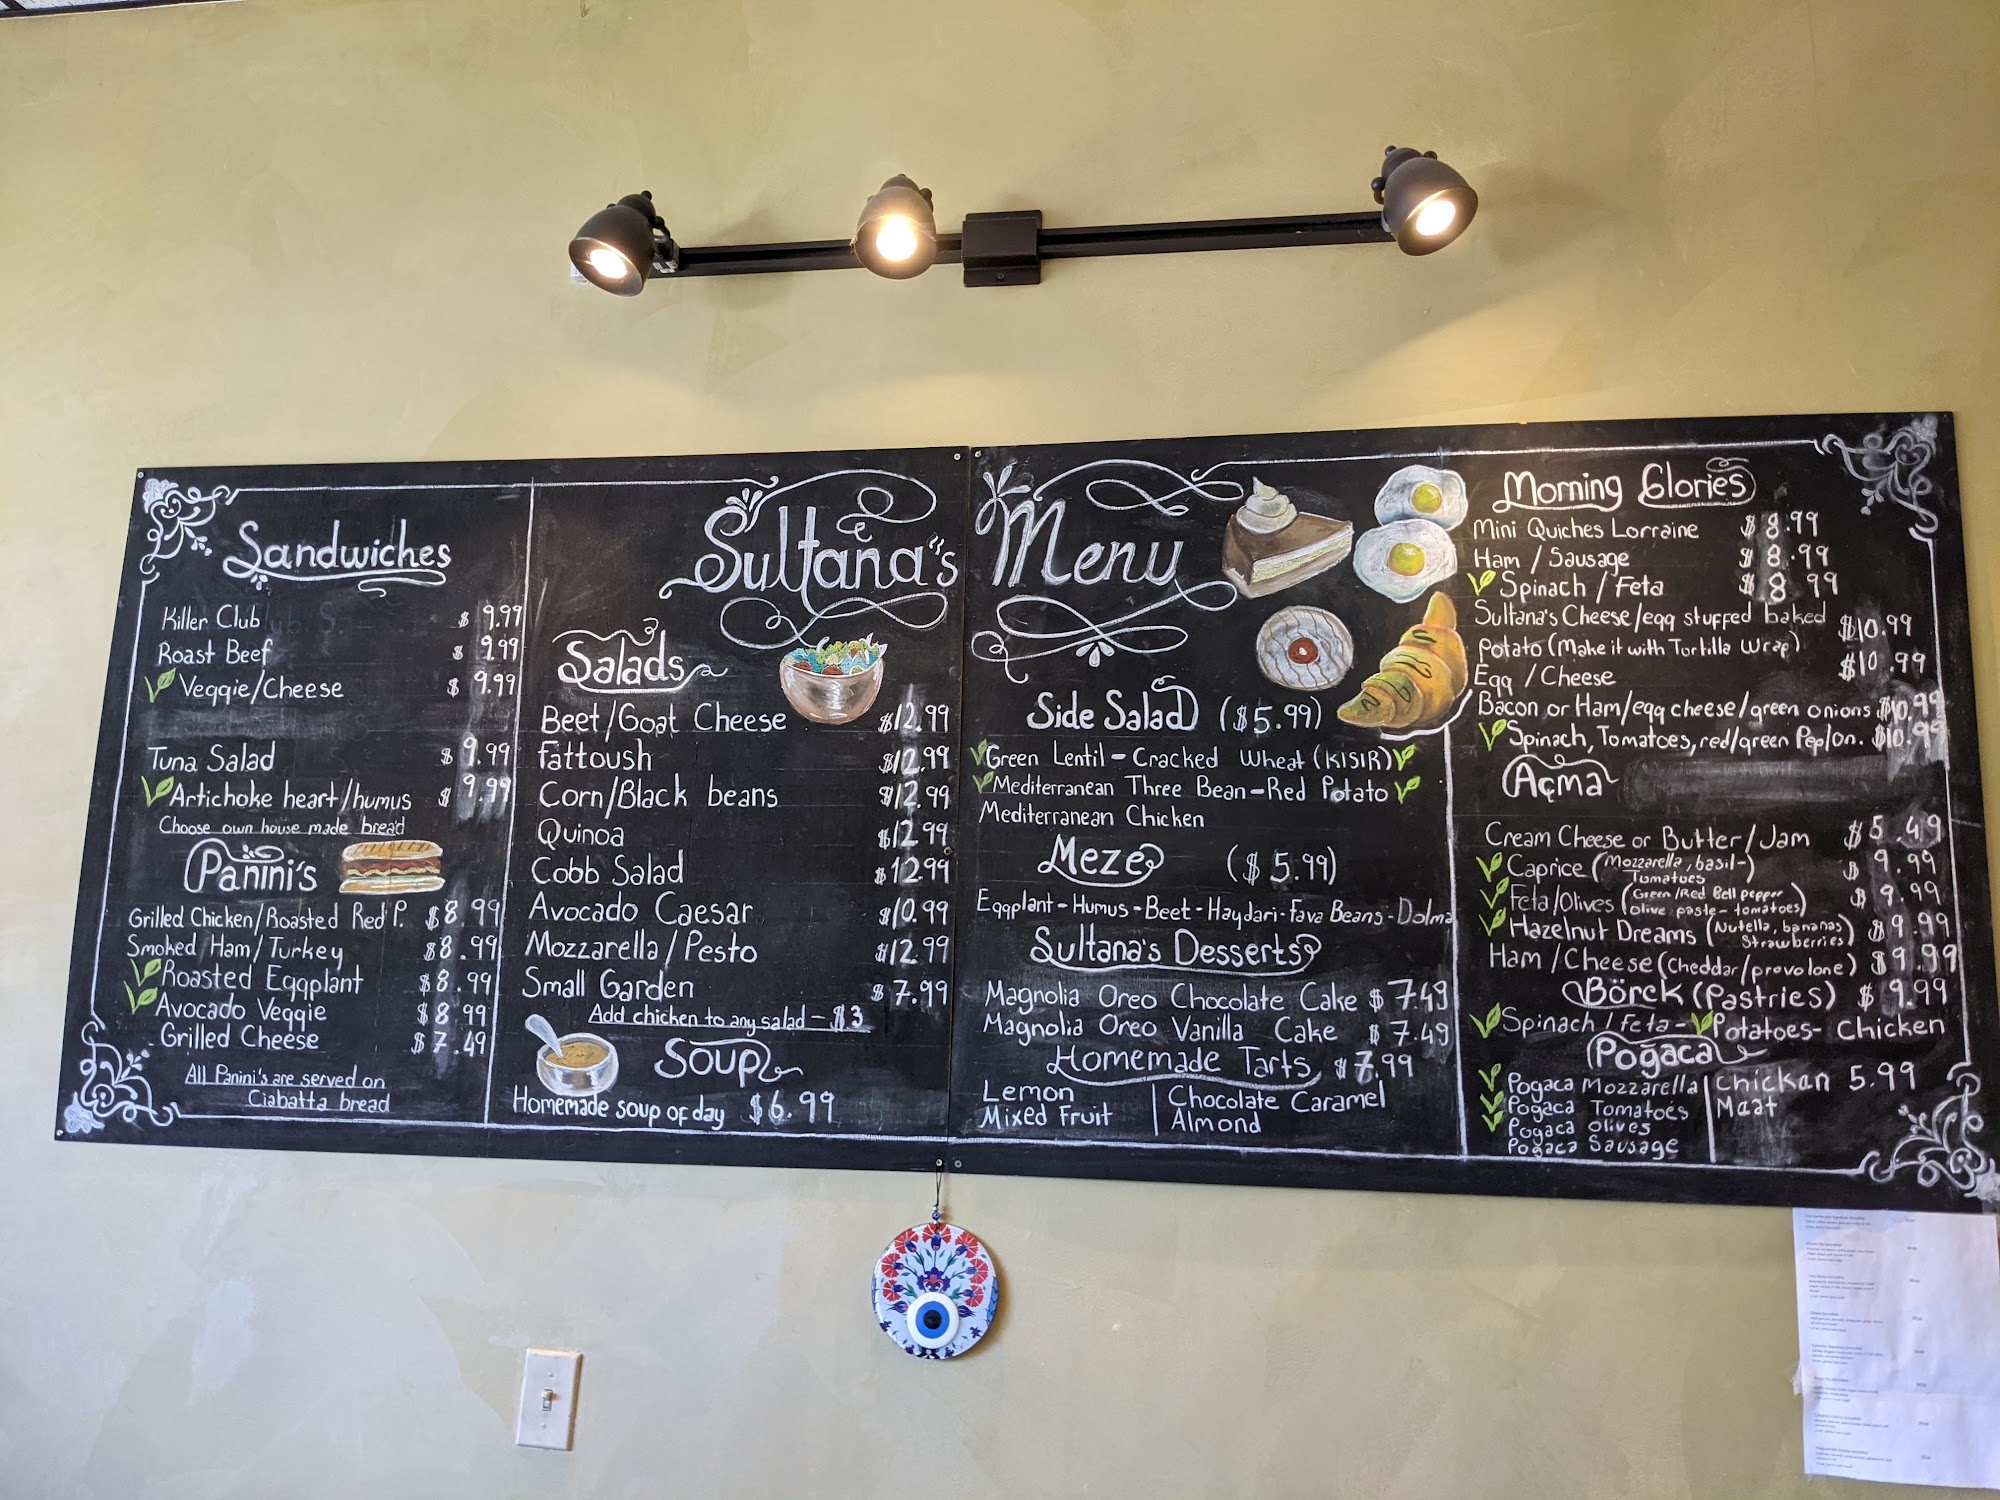 Sandwiches
Killer Club $ 9.99
Roast Beef $ 9.99
Veggie/Cheese $ 9.99
Tuna Salad $ 9.99
Artichoke heart/humus $ 9.99
Choose own house made bread
Panini's
Grilled Chicken/Roasted Red P. $8.99
Smoked Ham/Turkey $8.99
Roasted Eggplant $8.99
Avocado Veggie $8.99
Grilled Cheese $7.49
All Panini's are served on
Ciabatta bread
Sultana's
Salads
Beet/Goat Cheese $12.99
Fattoush $12.99
Corn/Black beans $12.99
Quinoa $12.99
Cobb Salad $12.99
Avocado Caesar $10.99
Mozzarella/Pesto $12.99
Small Garden $7.99
Add chicken to any salad - $3
Soup
Homemade soup of day $6.99
Menu
Side Salad ($5.99)
Green Lentil - Cracked Wheat (KISIR)
Mediterranean Three Bean - Red Potato
Mediterranean Chicken
Meze ($5.99)
Eggplant - Humus - Beet - Haydari - Fava Beans - Dolma
Sultana's Desserts
Magnolia Oreo Chocolate Cake $7.49
Magnolia Oreo Vanilla Cake $7.49
Homemade Tarts $7.99
Lemon | Chocolate Caramel
Mixed Fruit | Almond
Morning Glories
Mini Quiches Lorraine $8.99
Ham / Sausage $8.99
Spinach / Feta $8.99
Sultana's Cheese/egg stuffed baked $10.99
Potato (Make it with Tortilla Wrap)
Egg / Cheese $10.99
Bacon or Ham/egg cheese/green onions $10.99
Spinach, Tomatoes, red/green Pep/On. $10.99
Açma
Cream Cheese or Butter/Jam $5.49
Caprice (Mozzarella, basil- Tomatoes $9.99
Feta/Olives (Green/Red Bell pepper olive paste - tomatoes) $9.99
Hazelnut Dreams (Nutella, bananas Strawberries) $9.99
Ham / Cheese (cheddar/provolone) $9.99
Börek (Pastries) $9.99
Spinach / Feta - Potatoes - Chicken
Poğaca
Pogaca Mozzarella | Chickan 5.99
Pogaca Tomatoes | Maat
Pogaca olives
Pogaca Sausage